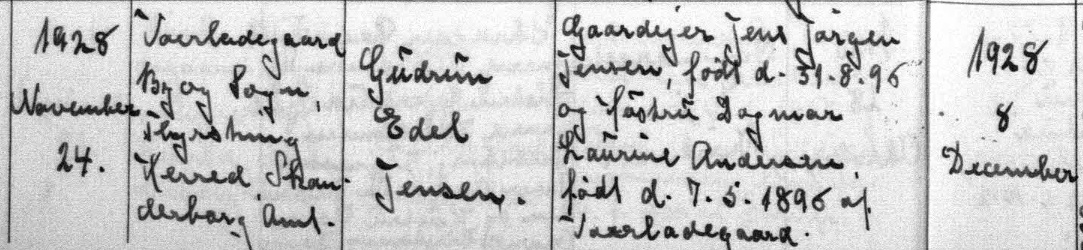 1928
November
24.
Vaerladegaard
By og Sogn,
Thyrsting
Herred Skan-
derborg Amt.
Gudrun
Edel
Jensen.
Gaardejer Jens Jörgen
Jensen, födt d. 31-8-96
og Hustru Dagmar
Laurine Andersen
födt d. 7-5-1896 af
Vaerladegaard.
1928
8
December